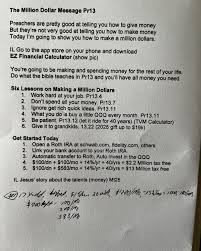 The Million Dollar Message Pr13
Preachers are pretty good at telling you how to give money
But they're not very good at telling you how to make money
Today I'm going to show you how to make a million dollars.
IL Go to the app store on your phone and download
EZ Financial Calculator (show pic)
You're going to be making and spending money for the rest of your life.
Do what the bible teaches in Pr13 and you'll have all money you need
Six Lessons on Making a Million Dollars
1. Work hard at your job. Pr13.4
2. Don't spend all your money. Pr13.7
3. Ignore get rich quick ideas. Pr13.11
4. What you do is buy a little QQQ every month. Pr13.11
5. Be patient. Pr13.12 (let it ride for 40 years) (TVM Calculator)
6. Give it to grandkids. 13.22 (2026 gift up to $19k)
Get Started Today
1. Open a Roth IRA at schwab.com, fidelity.com, others
2. Link your bank account to your Roth IRA
3. Automatic transfer to Roth, Auto invest in the QQQ
4. $100/dn + $100/mo + 14%/yr + 40/yrs = $2.2 Million tax free
5. $100/dn + $580/mo + 14%/yr + 40/yrs = $13 Million tax free
IL Jesus' story about the talents (money) Mt25